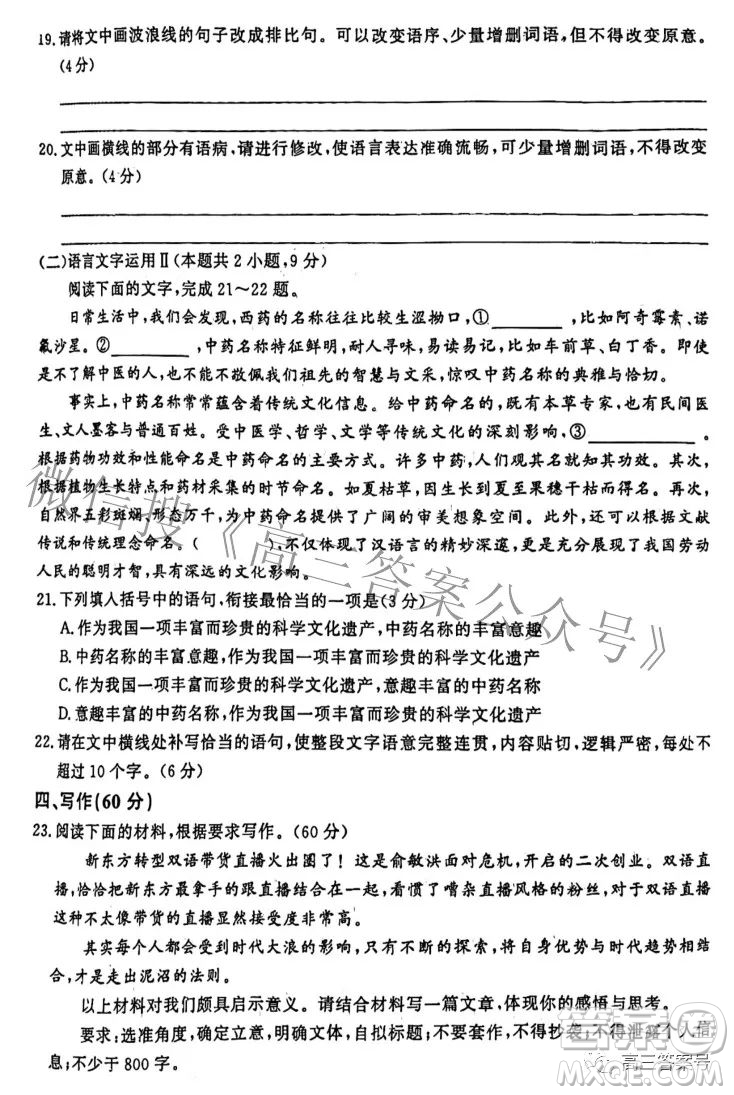 19.请将文中画波浪线的句子改成排比句。可以改变语序、少量增删词语,但不得改变原意。
(4分)
20.文中画横线的部分有语病,请进行修改,使语言表达准确流畅,可少量增删词语,不得改变
原意。(4分)
(二)语言文字运用Ⅱ(本题共2小题,9分)
阅读下面的文字,完成21～22题。
日常生活中,我们会发现,西药的名称往往比较生涩拗口,①________,比如阿奇霉素、诺
氟沙星。②________,中药名称特征鲜明,耐人寻味,易读易记,比如车前草、白丁香。即使
是不了解中医的人,也能从中感受到我们祖先的智慧与文采,惊叹中药名称的典雅与恰切。
事实上,中药名称常常蕴含着传统文化信息。给中药命名的,既有本草专家,也有民间医
生、文人墨客与普通百姓。受中医学、哲学、文学等传统文化的深刻影响,③________。
根据药物功效和性能命名是中药命名的主要方式。许多中药,人们观其名就知其功效。其次,
根据植物生长特点和药材采集的时节命名。如夏枯草,因其冬至生,夏至果穗干枯而得名。再次,
自然界五彩斑斓,形态万千,为中药命名提供了广阔的审美想象空间。此外,还有根据文献
传说和传统理念命名。(　　),不仅体现了汉语言的精妙深邃,更是充分展现了我国劳动
人民的聪明才智,具有深远的文化影响。
21.下列填入括号中的语句,衔接最恰当的一项是(3分)
A.作为我国一项丰富而珍贵的科学文化遗产,中药名称的丰富意趣
B.中药名称的丰富意趣,作为我国一项丰富而珍贵的科学文化遗产
C.作为我国一项丰富而珍贵的科学文化遗产,意趣丰富的中药名称
D.意趣丰富的中药名称,作为我国一项丰富而珍贵的科学文化遗产
22.请在文中横线处补写恰当的语句,使整段文字语意完整连贯,内容贴切,逻辑严密,每处不
超过10个字。(6分)
四、写作(60分)
23.阅读下面的材料,根据要求写作。(60分)
新东方转型双语带货直播火出圈了!这是俞敏洪面对危机,开启的二次创业。双语直
播,恰恰把新东方最拿手的跟直播结合在一起,看惯了嘈杂直播风格的粉丝,对于双语直播
这种不太像带货的直播显然接受度非常高。
其实每个人都会受到时代大浪的影响,只有不断的探索,将自身优势与时代趋势相结
合,才是走出泥沼的法则。
以上材料对我们颇具启示意义。请结合材料写一篇文章,体现你的感悟与思考。
要求:选准角度,确定立意,明确文体,自拟标题;不要套作,不得抄袭;不得泄露个人信
息;不少于800字。
微信搜《高三答案公众号》
答案圈
MXQE.COM
高三答案号